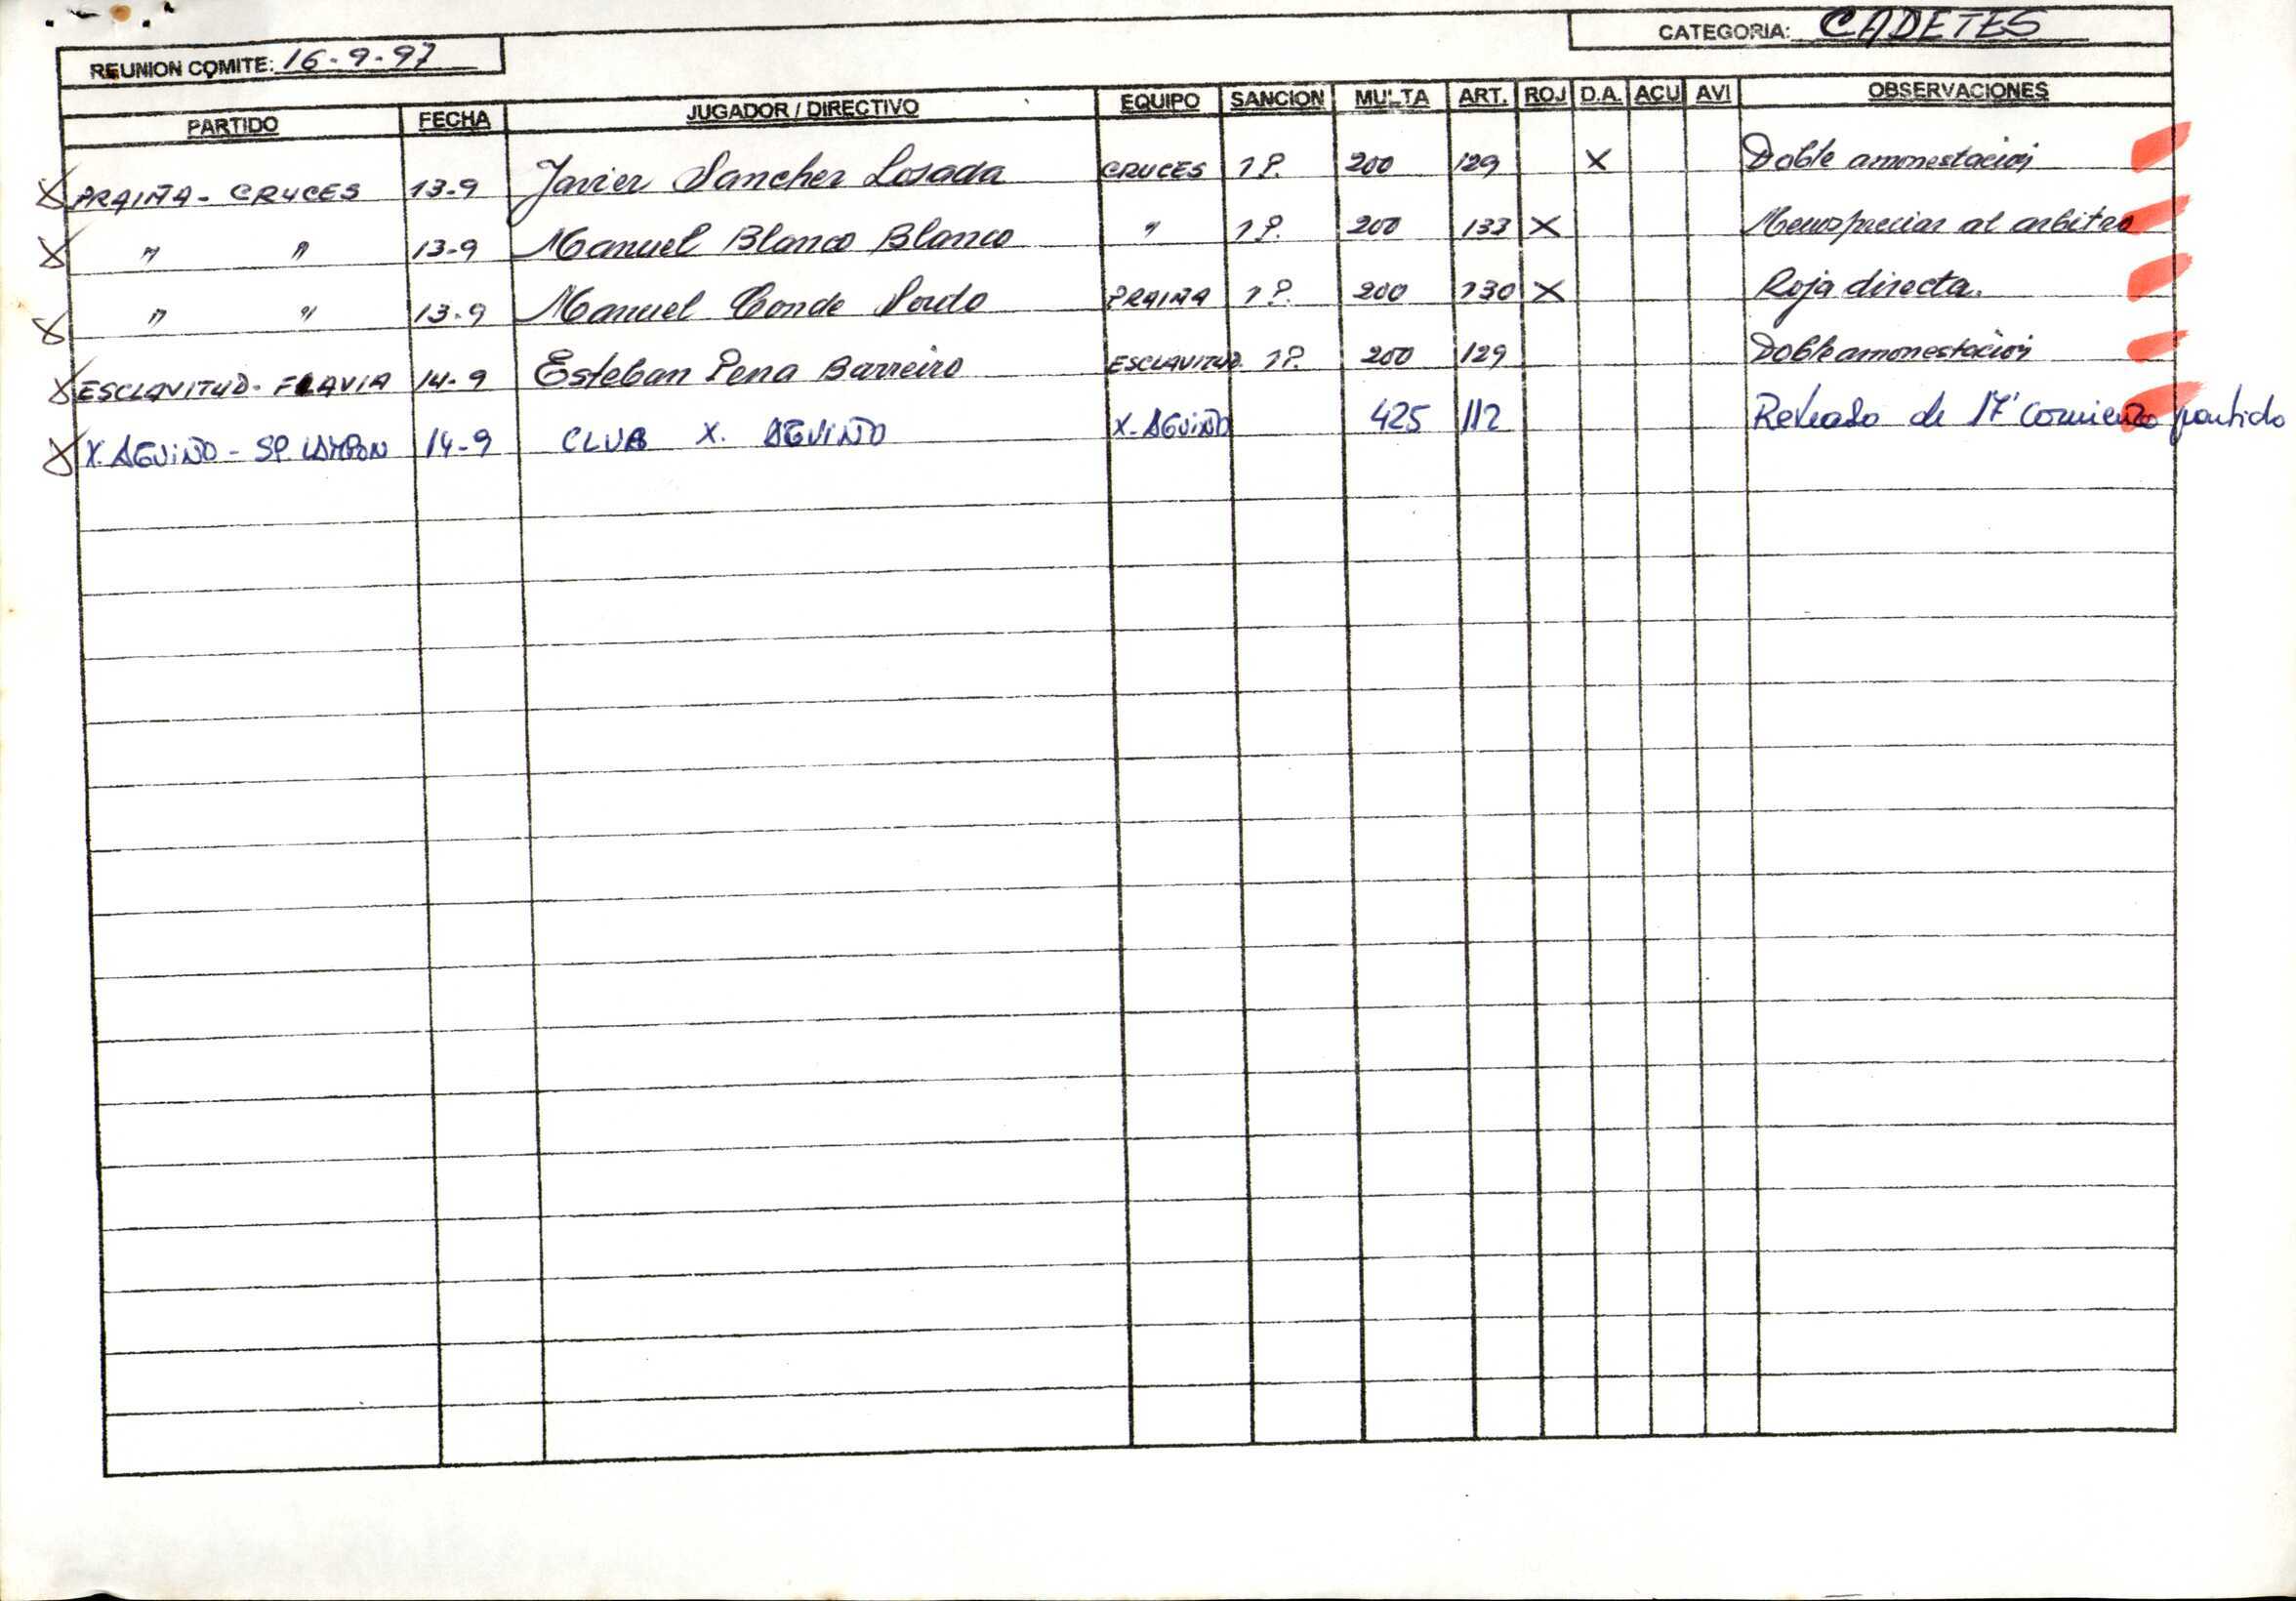 REUNION COMITE: 16-9-97
CATEGORIA: CADETES
PARTIDO FECHA JUGADOR / DIRECTIVO EQUIPO SANCION MULTA ART. ROJ D.A. ACU AVI OBSERVACIONES
X PRAIÑA - CRUCES 13-9 Javier Sanchez Losada CRUCES 1P. 200 129 X Doble amonestación
X " " 13-9 Manuel Blanco Blanco " 1P. 200 133 X Menospreciar al arbitro
X " " 13-9 Manuel Conde Souto PRAIÑA 1P. 200 130 X Roja directa.
X ESCLAVITUD - FLAVIA 14-9 Esteban Pena Barreiro ESCLAVITUD 1P. 200 129 Doble amonestación
X X. AGUIÑO - SP. LAMPON 14-9 CLUB X. AGUIÑO X. AGUIÑO 425 112 Retraso de 17' comienzo partido